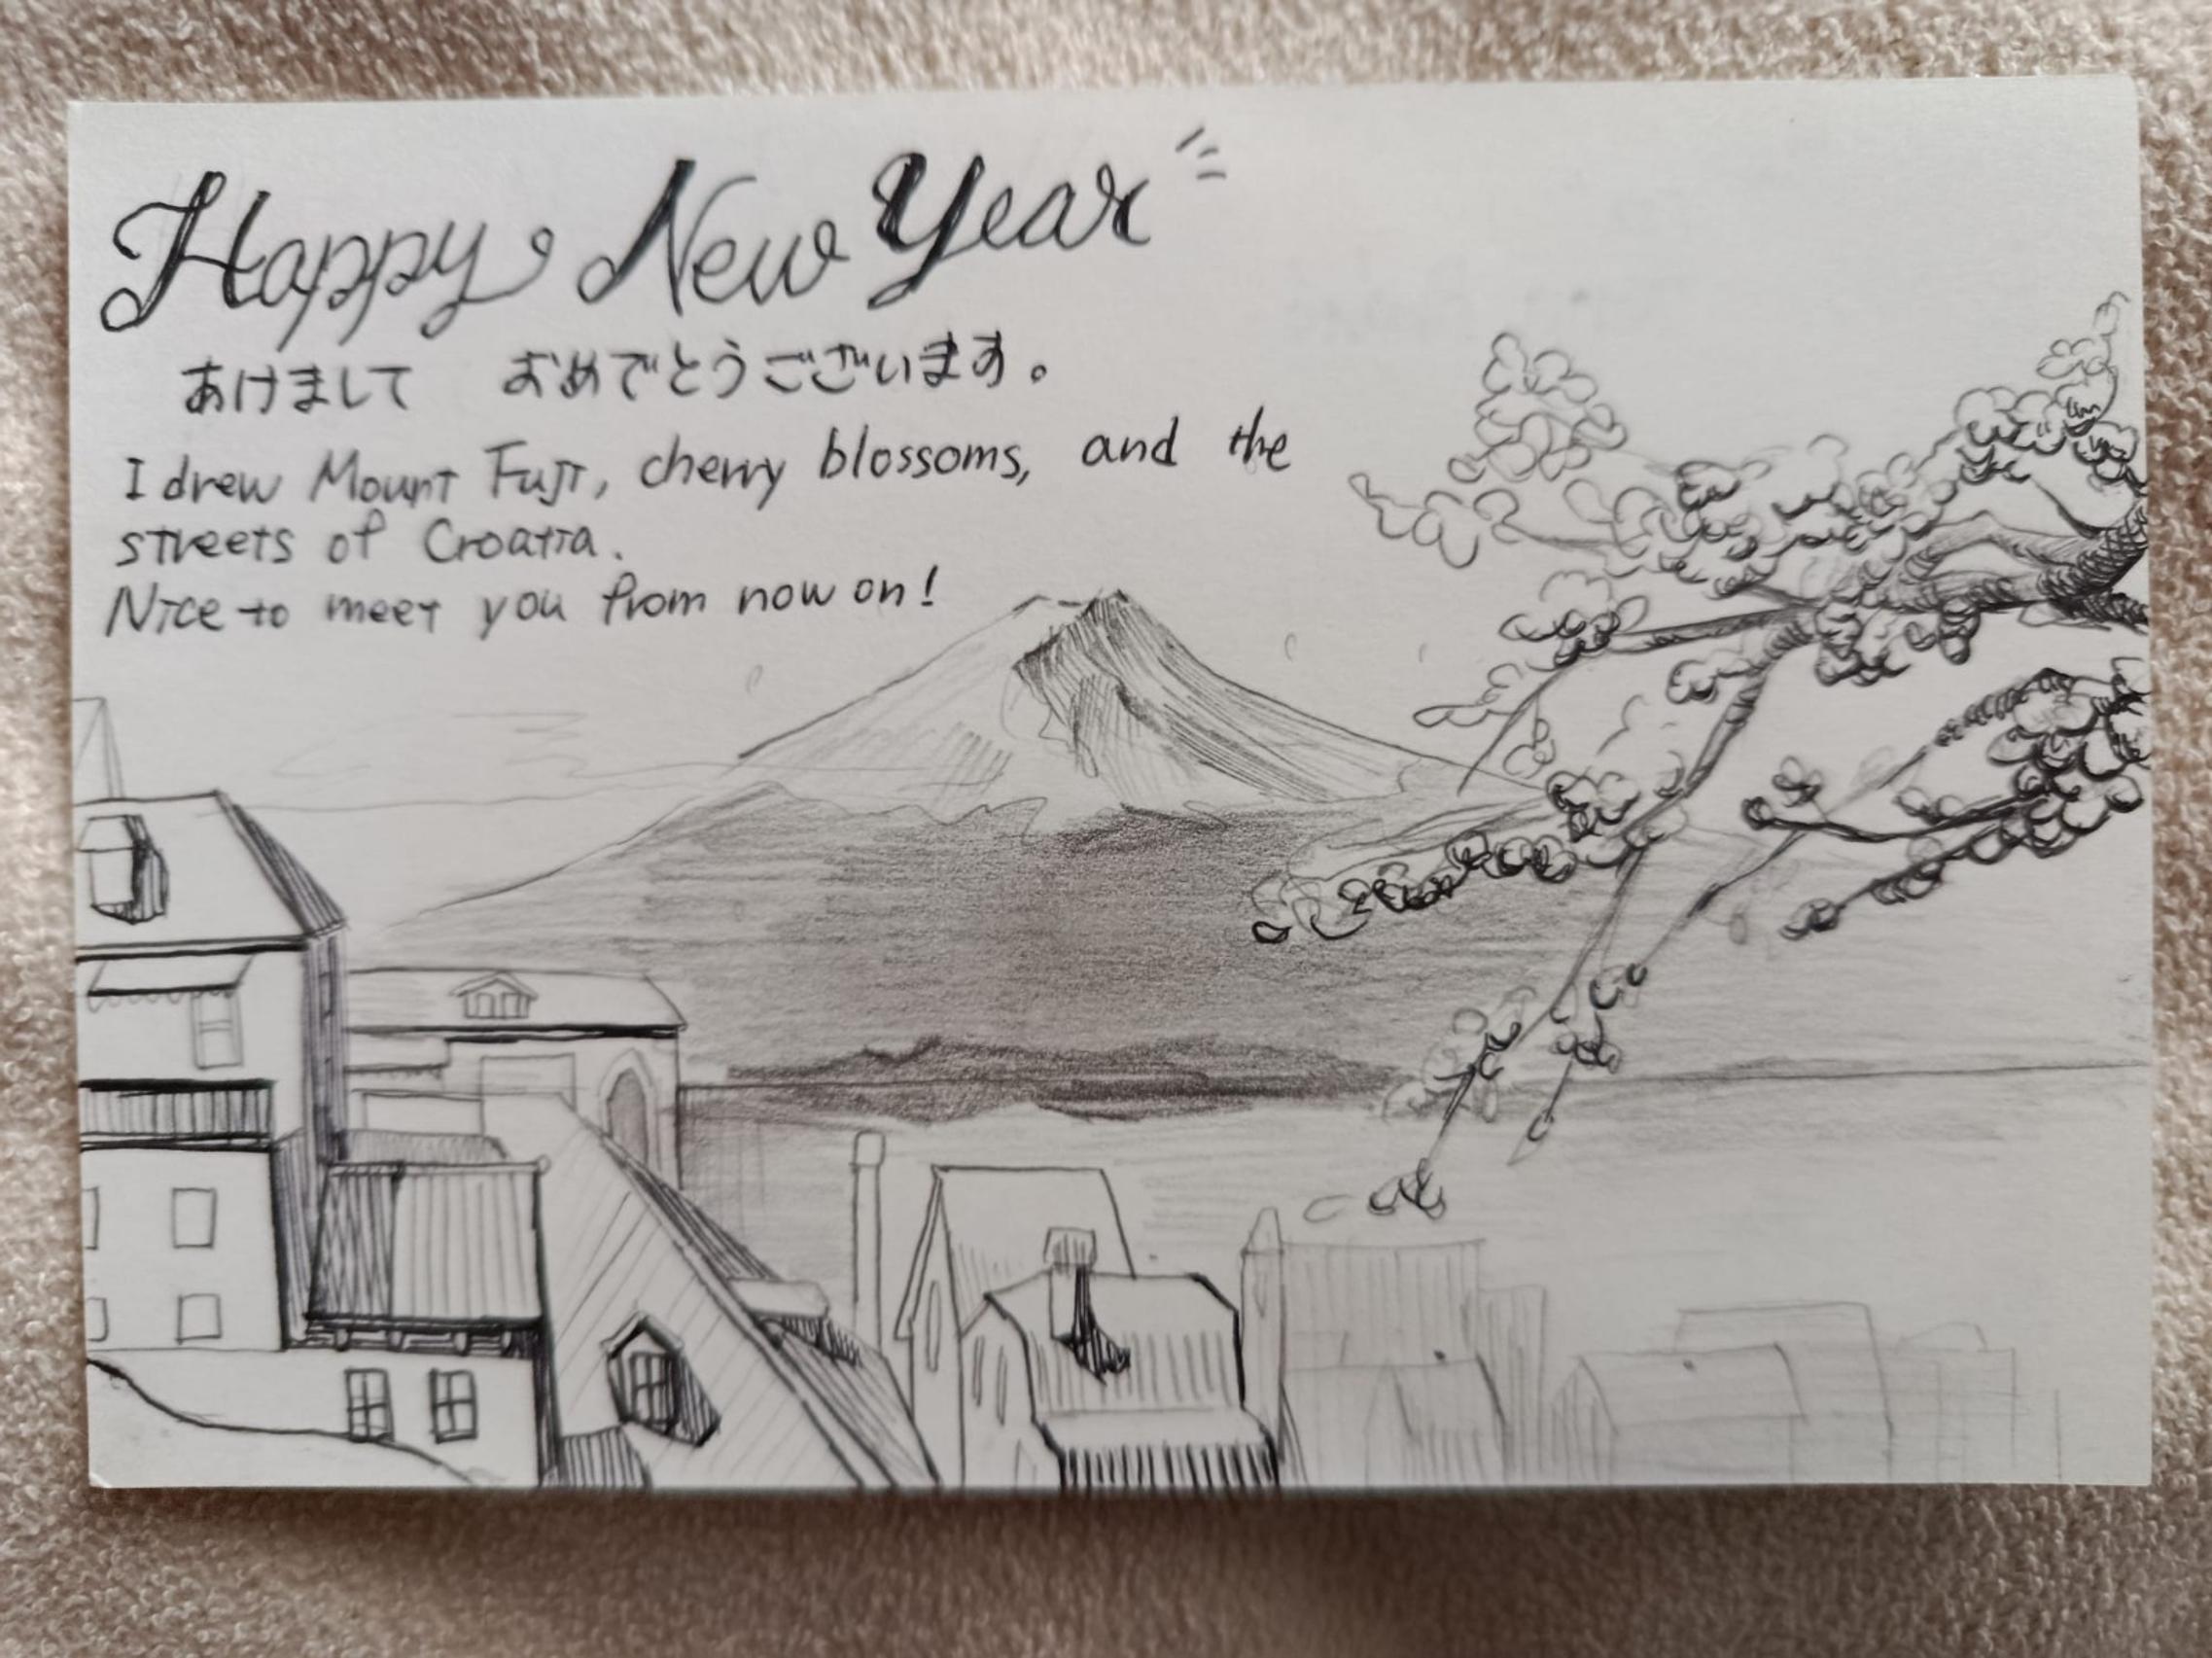 Happy New Year
あけまして おめでとうございます。
I drew Mount Fuji, cherry blossoms, and the
streets of Croatia.
Nice to meet you from now on!